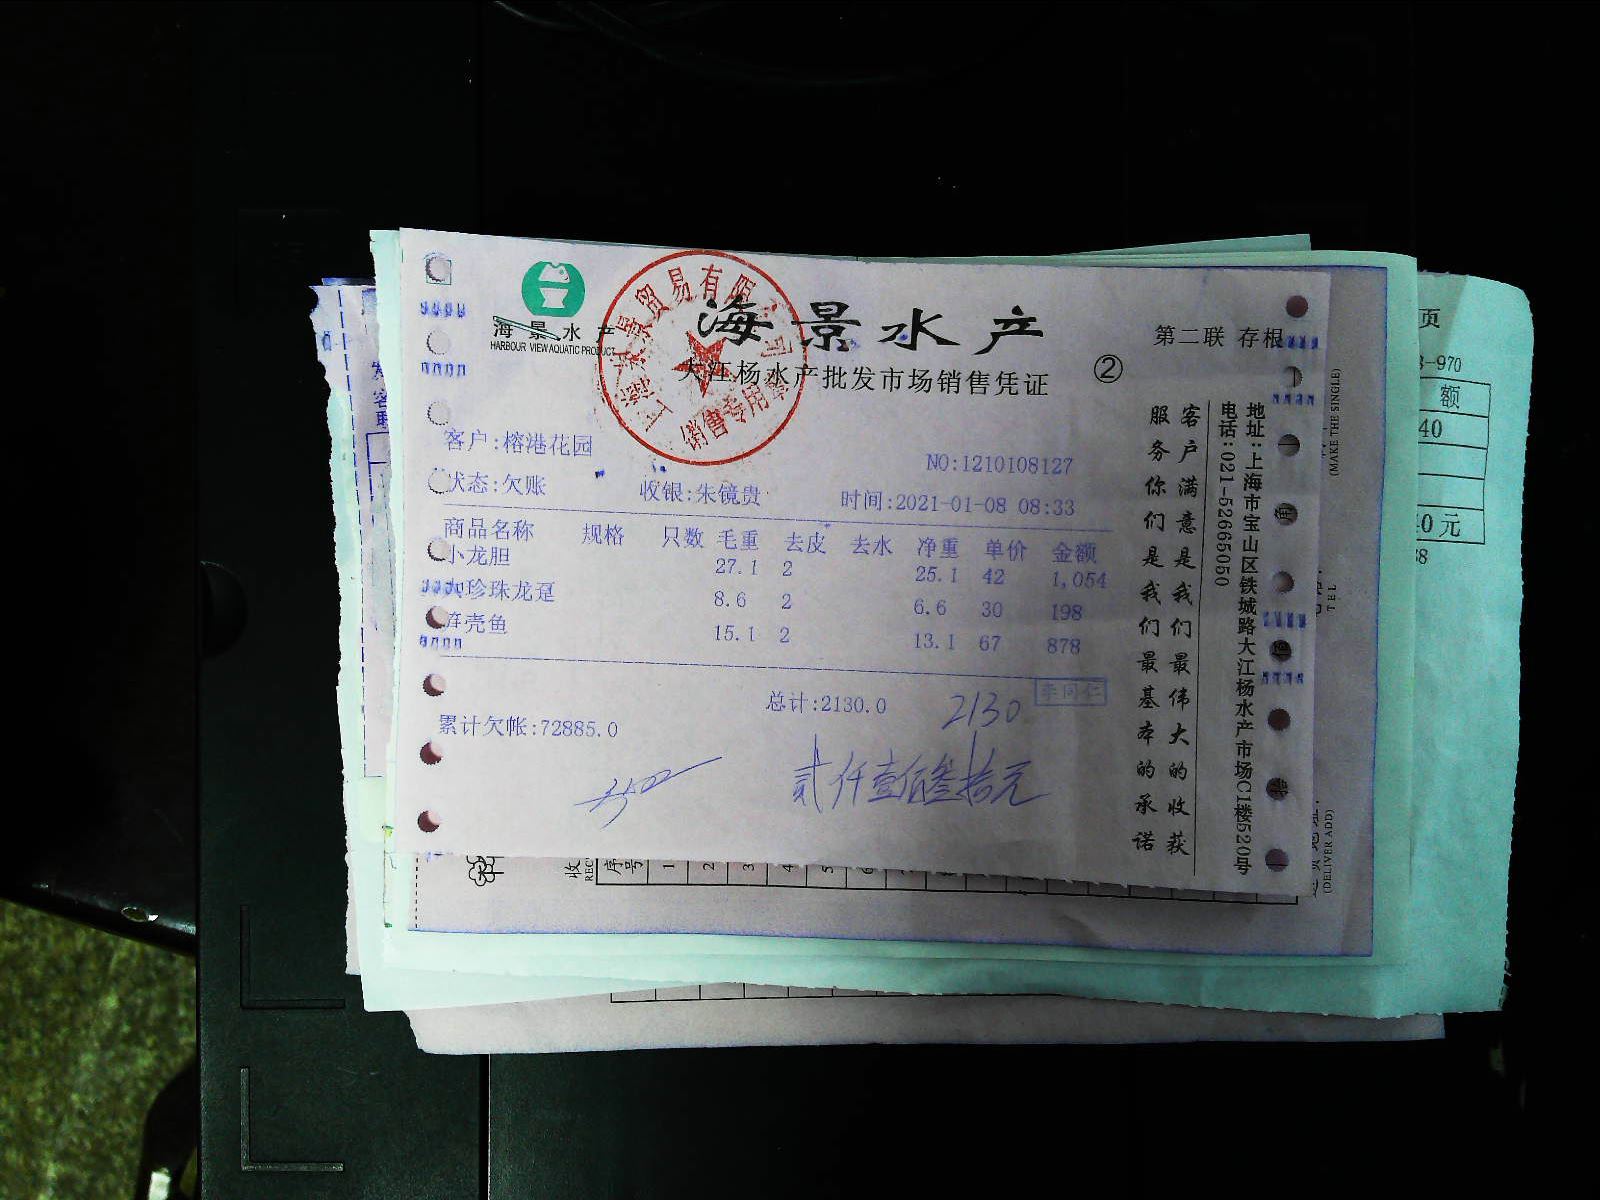 海景水产
HARBOUR VIEW AQUATIC PRODUCT
海景水产
第二联 存根
大江杨水产批发市场销售凭证 ②
销售专用章
客户:榕港花园
NO:1210108127
状态:欠账 收银:朱镜贵 时间:2021-01-08 08:33
商品名称 规格 只数 毛重 去皮 去水 净重 单价 金额
小龙胆 27.1 2 25.1 42 1,054
珍珠龙趸 8.6 2 6.6 30 198
笋壳鱼 15.1 2 13.1 67 878
总计:2130.0 2130 李同仁
累计欠帐:72885.0
贰仟壹佰叁拾元
客户满意是我们最伟大的收获
服务你们是我们最基本的承诺
地址:上海市宝山区铁城路大江杨水产市场C1楼520号
电话:021-52665050
页
-970
额
40
0元
(MAKE THE SINGLE)
TEL
(DELIVER ADD)
收
序号 1 2 3 4 5 6